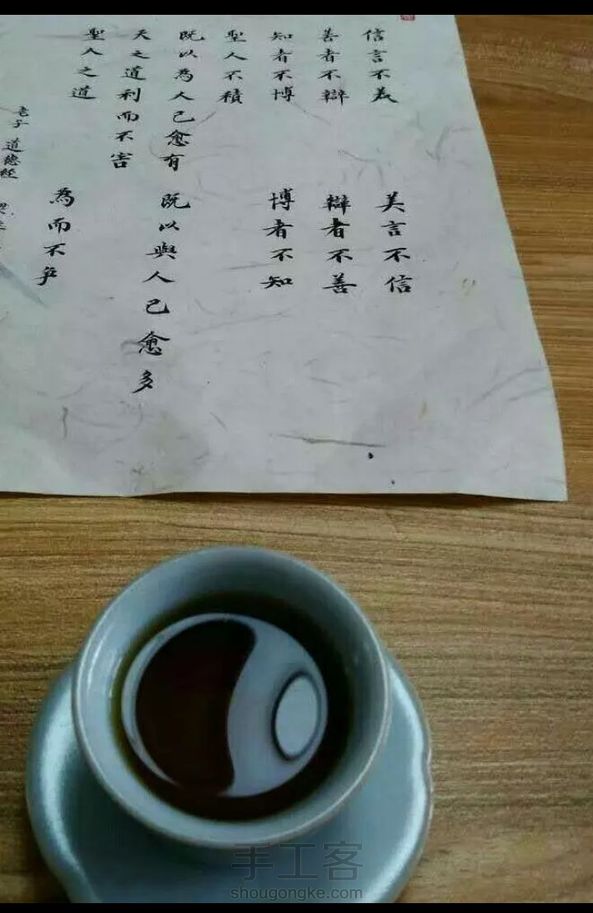 信言不美 美言不信
善者不辯 辯者不善
知者不博 博者不知
聖人不積
既以為人己愈有 既以與人己愈多
天之道利而不害
聖人之道 為而不爭
老子 道德經
手工客
shougongke.com